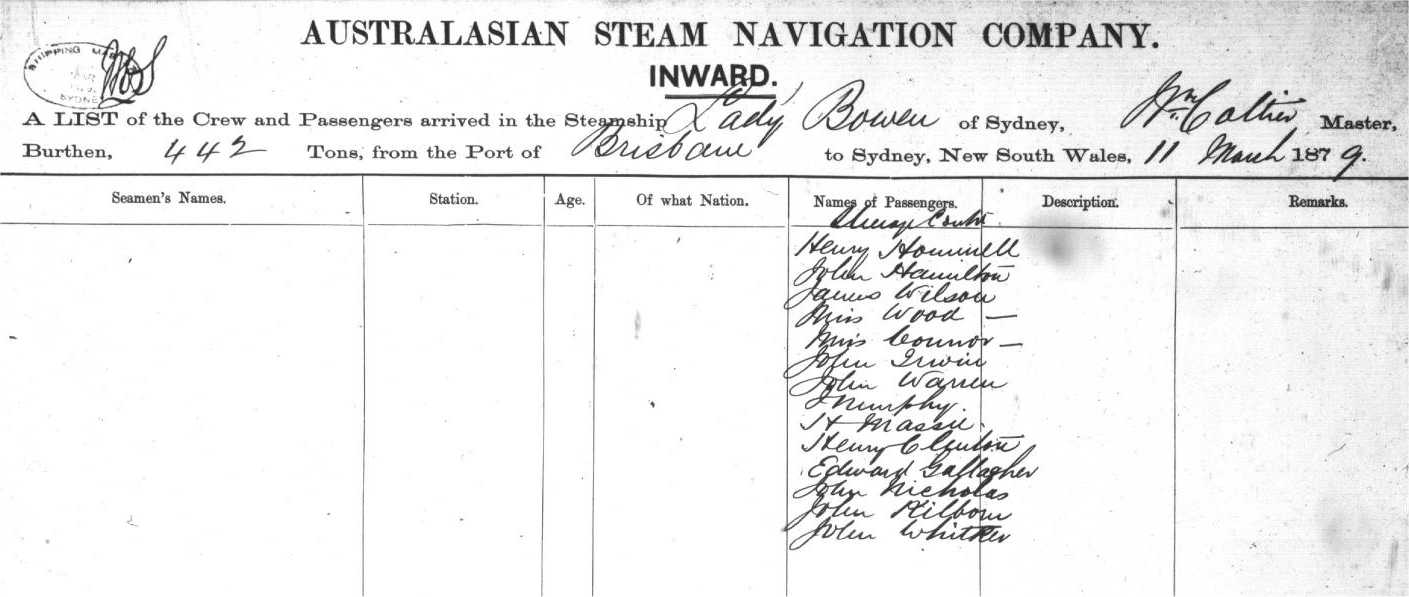 AUSTRALASIAN STEAM NAVIGATION COMPANY.
SHIPPING MA
SYDNEY
INWARD.
A LIST of the Crew and Passengers arrived in the Steamship Lady Bowen of Sydney, Wm. Collier Master,
Burthen, 442 Tons, from the Port of Brisbane to Sydney, New South Wales, 11 March 1879.
Seamen's Names. Station. Age. Of what Nation. Names of Passengers. Description. Remarks.
Steerage Contd
Henry
John Hamilton
James Wilson
Miss Wood —
Miss Connor —
John Irwin
John Warren
J Murphy.
H Massie
Henry Clinton
Edward Gallagher
John Nicholas
John Kilborn
John Whitker